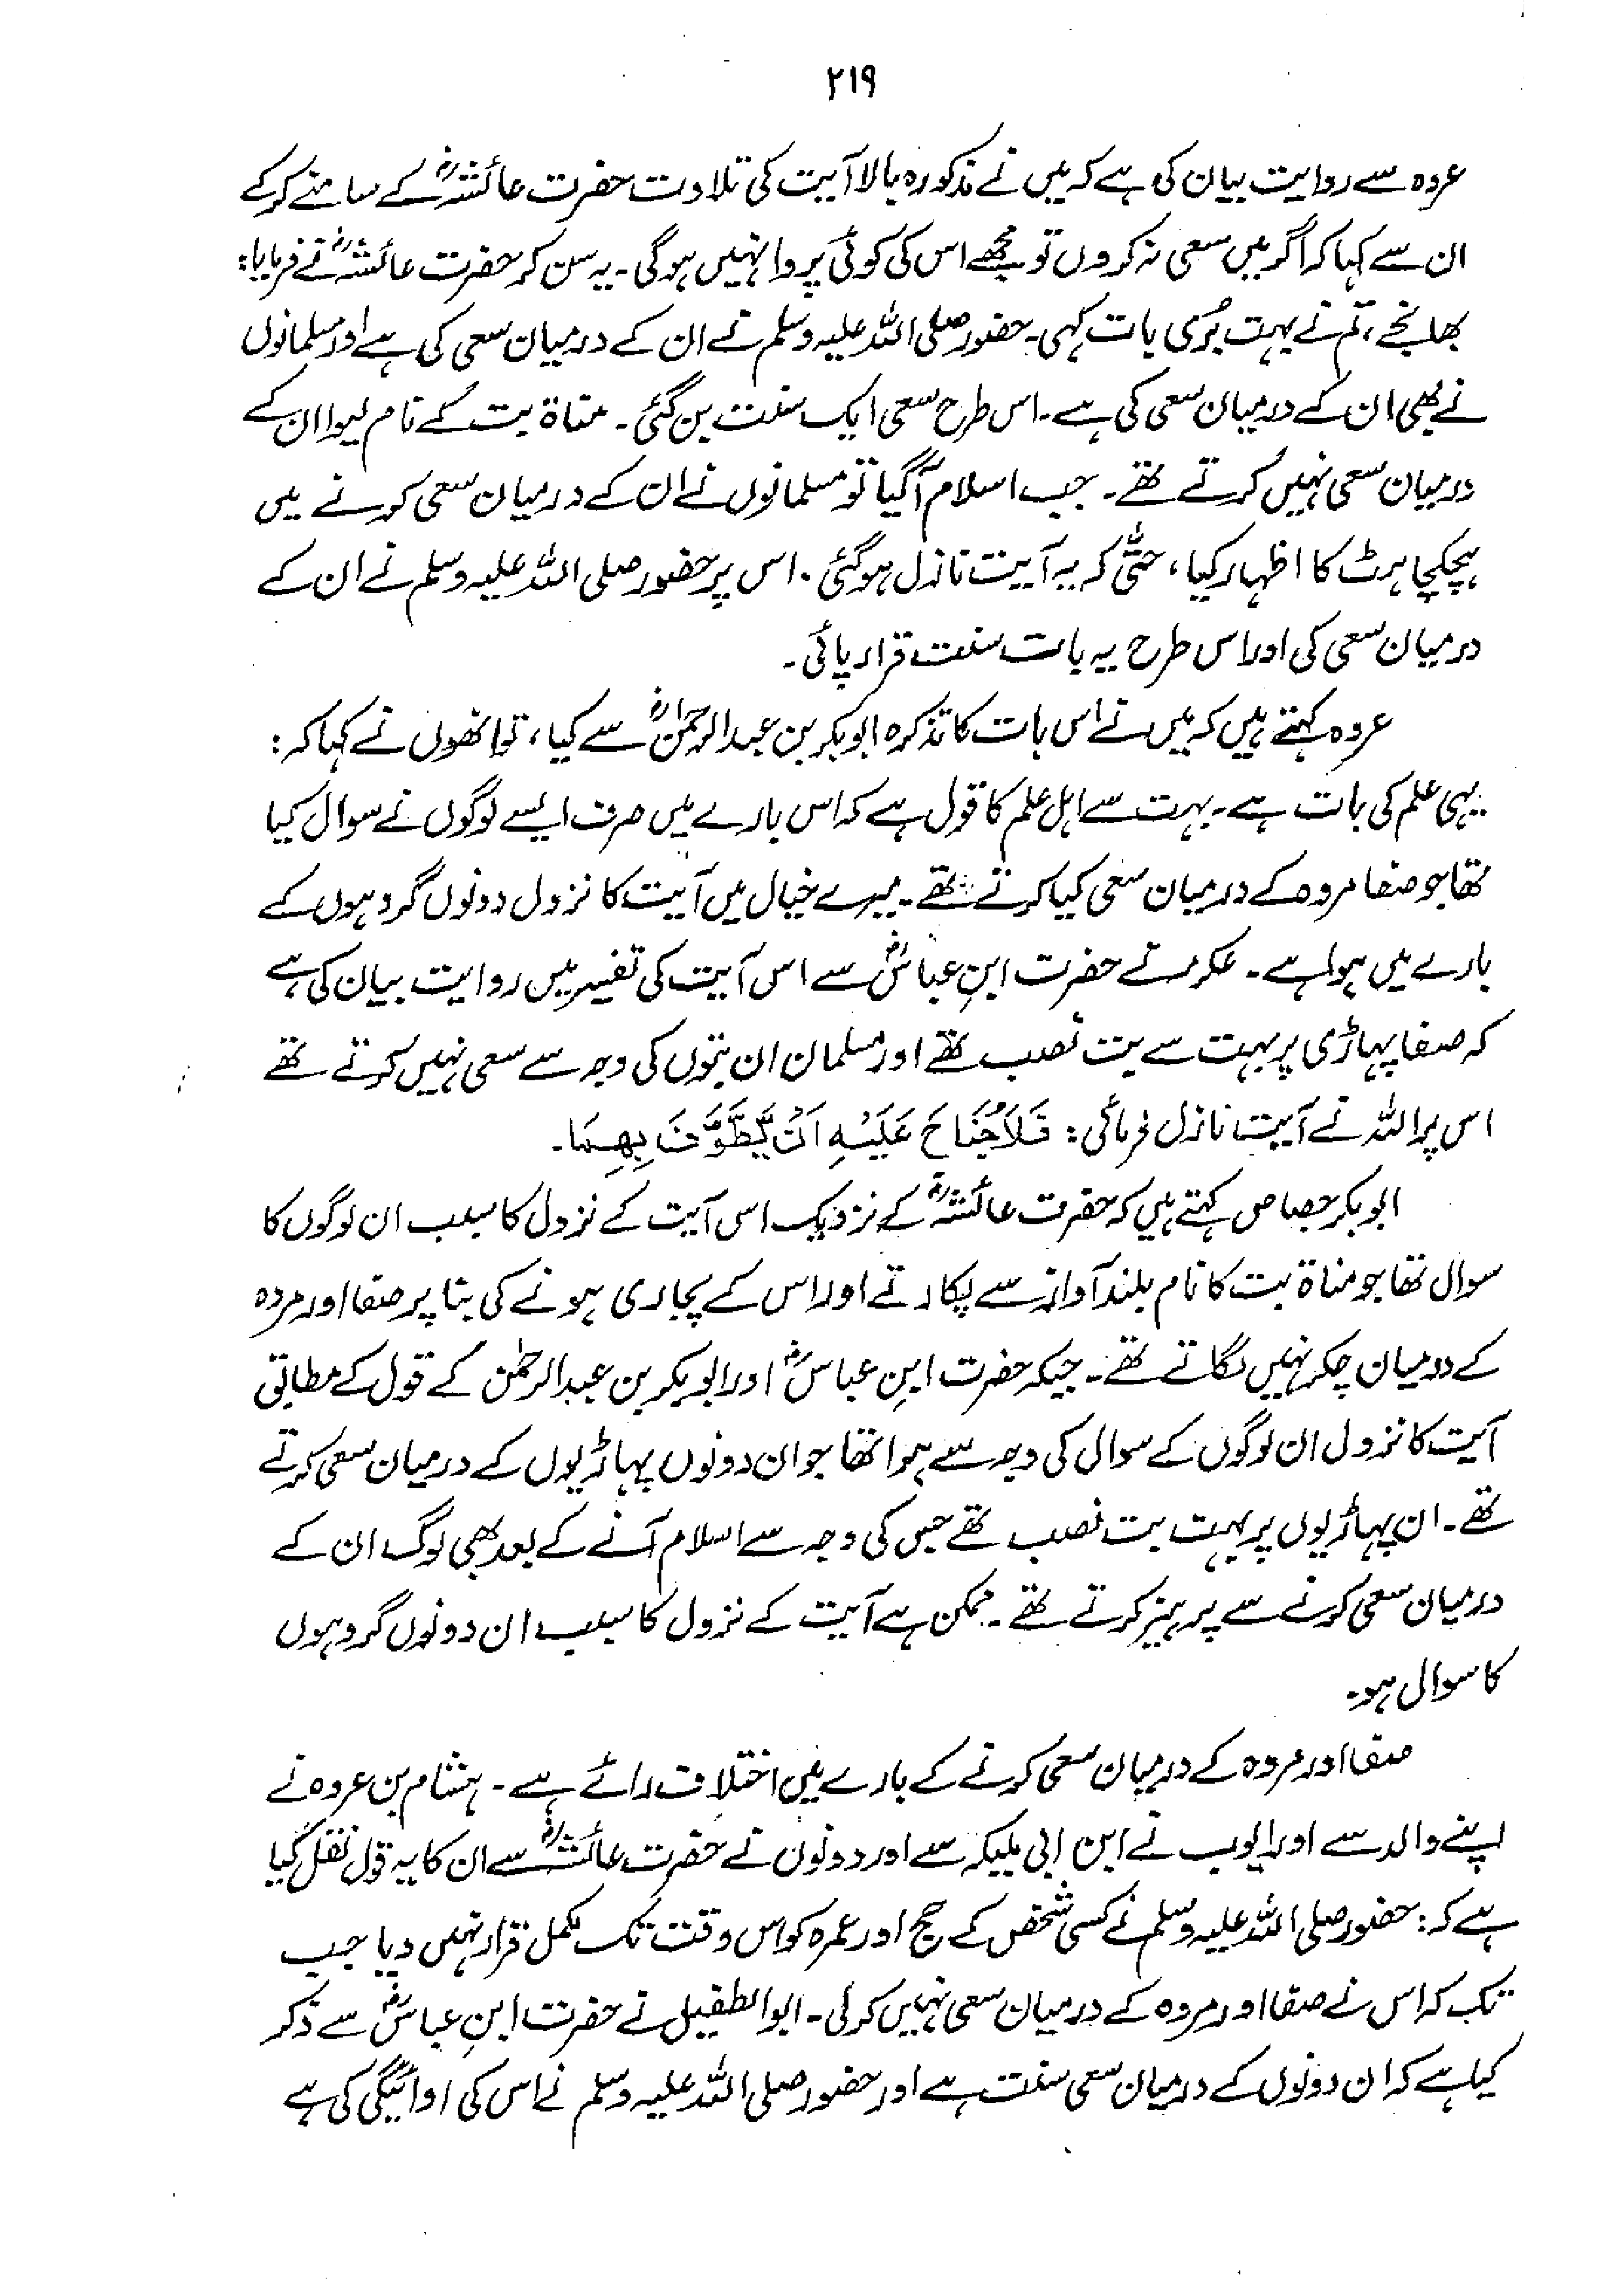 ۲۱۹
عروہ سے روایت بیان کی ہے کہ میں نے مذکورہ بالا آیت کی تلاوت حضرت عائشہؓ کے سامنے کر کے
ان سے کہا کہ اگر میں سعی نہ کروں تو مجھے اس کی کوئی پروا نہیں ہو گی۔ یہ سن کر حضرت عائشہؓ نے فرمایا:
بھانجے، تم نے بہت بُری بات کہی۔ حضور صلی اللہ علیہ وسلم نے ان کے درمیان سعی کی ہے اور مسلمانوں
نے بھی ان کے درمیان سعی کی ہے۔ اس طرح سعی ایک سنت بن گئی۔ مناۃ بت کے نام لیوا ان کے
درمیان سعی نہیں کرتے تھے۔ جب اسلام آگیا تو مسلمانوں نے ان کے درمیان سعی کرنے میں
ہچکچاہٹ کا اظہار کیا، حتّٰی کہ یہ آیت نازل ہو گئی۔ اس پر حضور صلی اللہ علیہ وسلم نے ان کے
درمیان سعی کی اور اس طرح یہ بات سنت قرار پائی۔
عروہ کہتے ہیں کہ میں نے اس بات کا تذکرہ ابوبکر بن عبدالرحمٰنؓ سے کیا، تو انھوں نے کہا کہ:
یہی علم کی بات ہے۔ بہت سے اہل علم کا قول ہے کہ اس بارے میں صرف ایسے لوگوں نے سوال کیا
تھا جو صفا مروہ کے درمیان سعی کیا کرتے تھے۔ میرے خیال میں آیت کا نزول دونوں گروہوں کے
بارے میں ہوا ہے۔ عکرمہ نے حضرت ابنِ عباسؓ سے اس آیت کی تفسیر میں روایت بیان کی ہے
کہ صفا پہاڑی پر بہت سے بت نصب تھے اور مسلمان ان بتوں کی وجہ سے سعی نہیں کرتے تھے
اس پر اللہ نے آیت نازل فرمائی: فَلَا جُنَاحَ عَلَيْهِ اَنْ يَّطَّوَّفَ بِهِمَا۔
ابوبکر جصاص کہتے ہیں کہ حضرت عائشہؓ کے نزدیک اس آیت کے نزول کا سبب ان لوگوں کا
سوال تھا جو مناۃ بت کا نام بلند آواز سے پکارتے اور اس کے پجاری ہونے کی بنا پر صفا اور مروہ
کے درمیان چکر نہیں لگاتے تھے۔ جبکہ حضرت ابنِ عباسؓ اور ابوبکر بن عبدالرحمٰن کے قول کے مطابق
آیت کا نزول ان لوگوں کے سوال کی وجہ سے ہوا تھا جو ان دونوں پہاڑیوں کے درمیان سعی کرتے
تھے۔ ان پہاڑیوں پر بہت بت نصب تھے جس کی وجہ سے اسلام آنے کے بعد بھی لوگ ان کے
درمیان سعی کرنے سے پرہیز کرتے تھے۔ ممکن ہے آیت کے نزول کا سبب ان دونوں گروہوں
کا سوال ہو۔
صفا اور مروہ کے درمیان سعی کرنے کے بارے میں اختلاف رائے ہے۔ ہشام بن عروہ نے
اپنے والد سے اور ایوب نے ابن ابی ملیکہ سے اور دونوں نے حضرت عائشہؓ سے ان کا یہ قول نقل کیا
ہے کہ: حضور صلی اللہ علیہ وسلم نے کسی شخص کے حج اور عمرہ کو اس وقت تک مکمل قرار نہیں دیا جب
تک کہ اس نے صفا اور مروہ کے درمیان سعی نہیں کر لی۔ ابو الطفیل نے حضرت ابنِ عباسؓ سے ذکر
کیا ہے کہ ان دونوں کے درمیان سعی سنت ہے اور حضور صلی اللہ علیہ وسلم نے اس کی ادائیگی کی ہے